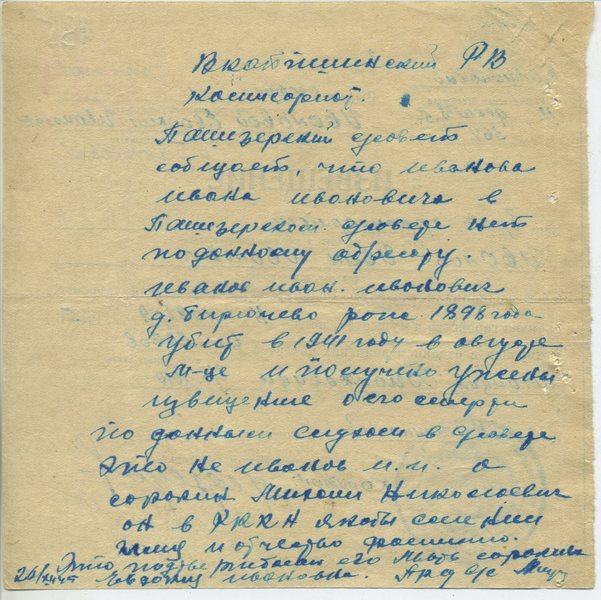 Вкапшинский РВ
комисориот.
Пашезерский с/совет
сообщает, что иванова
ивана ивановича в
Пашезерском с/совете нет
по данному адресу
иванов иван. иванович
д. Бирючево рож. 1898 года
убит в 1941 году в августе
м-це и получено у жены
извещение о его смерти
по данным слухам в с/совете
это не иванов и.и. а
сорокин Михаил Николаевич
он в РККА якобы сменил
имя и отчество фамилию.
Это подтвержает его мать сорокина
Евдокия ивановна. Пред с/с